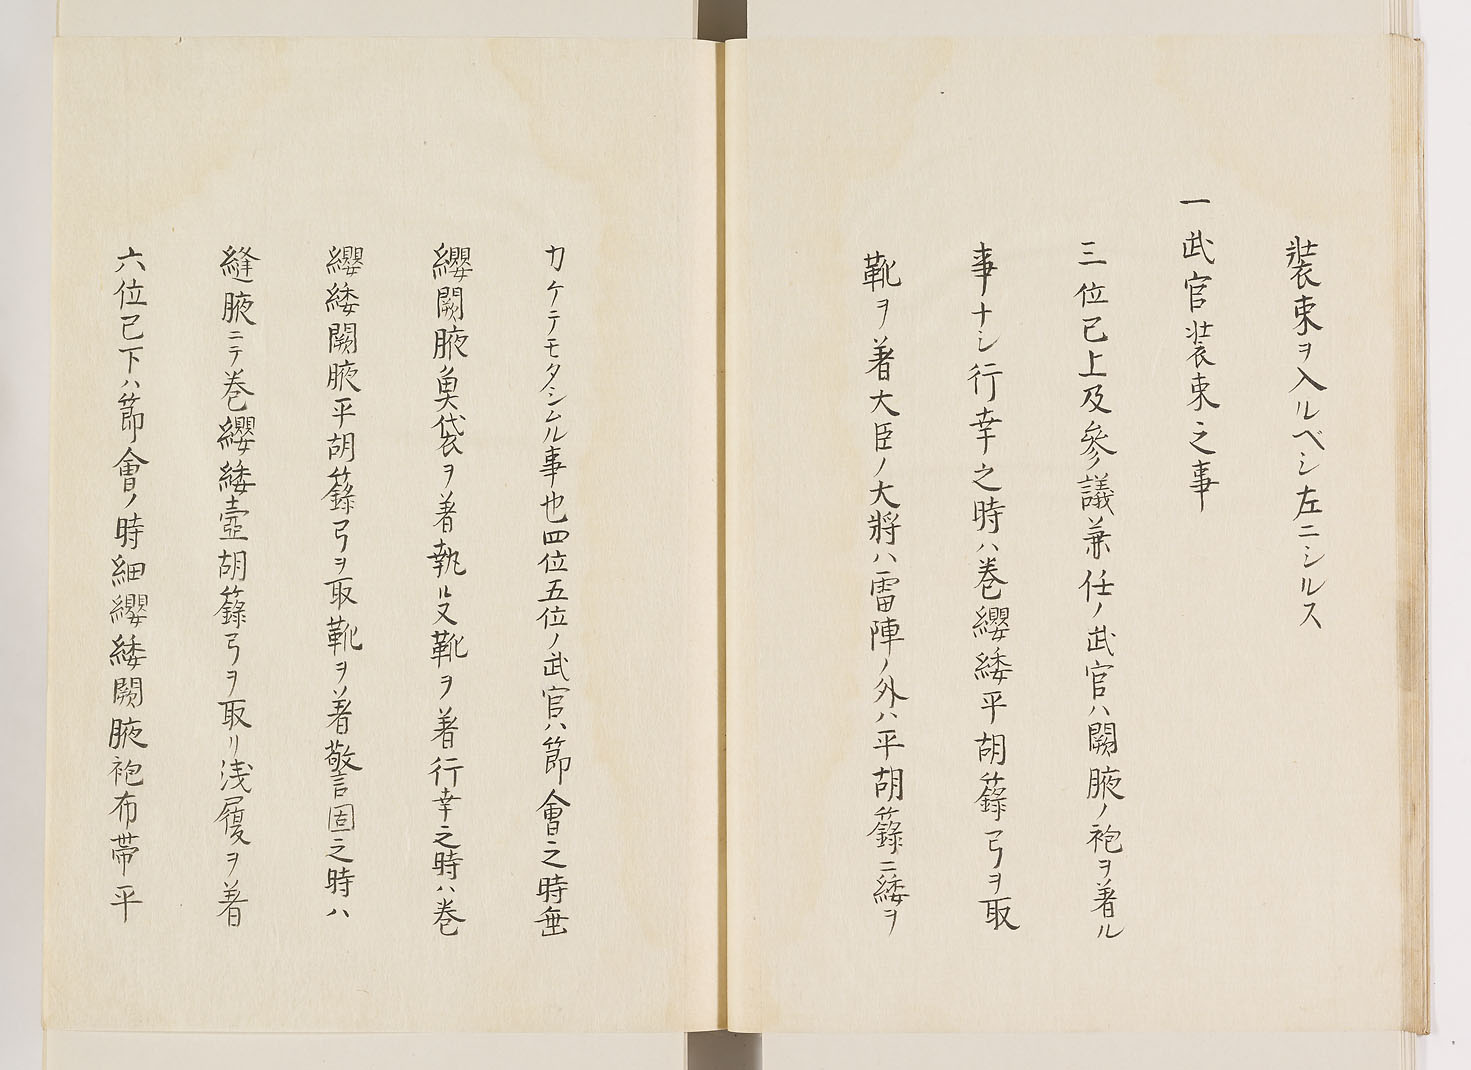 装束ヲ入ルベシ左ニシルス
一武官装束之事
三位已上及参議兼任ノ武官ハ闕腋ノ袍ヲ著ル
事ナシ行幸之時ハ巻纓緌平胡籙弓ヲ取
靴ヲ著大臣ノ大将ハ雷陣ノ外ハ平胡籙ニ緌ヲ
カケテモタシムル事也四位五位ノ武官ハ節會之時垂
纓闕腋魚袋ヲ著執ル又靴ヲ著行幸之時ハ巻
纓緌闕腋平胡籙弓ヲ取靴ヲ著警固之時ハ
縫腋ニテ巻纓緌壺胡籙弓ヲ取リ浅履ヲ著
六位已下ハ節會ノ時細纓緌闕腋袍布帯平